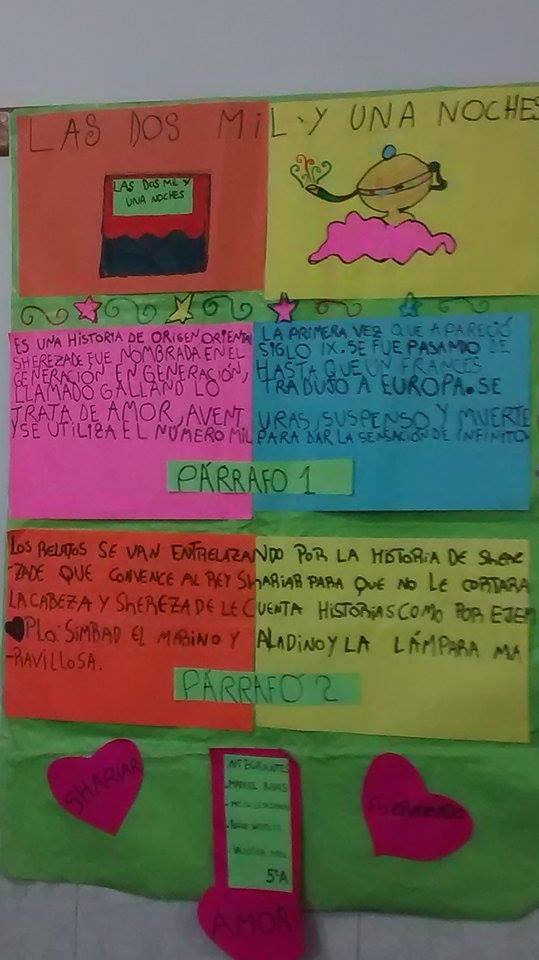 LAS DOS MIL Y UNA NOCHES
LAS DOS MIL Y
UNA NOCHES
ES UNA HISTORIA DE ORIGEN ORIENTAL LA PRIMERA VEZ QUE APARECIÓ
SHEREZADE FUE NOMBRADA EN EL SIGLO IX. SE FUE PASANDO DE
GENERACIÓN EN GENERACIÓN, HASTA QUE UN FRANCÉS
LLAMADO GALLAND LO TRADUJO A EUROPA. SE
TRATA DE AMOR, AVENTURAS, SUSPENSO Y MUERTE
Y SE UTILIZA EL NÚMERO MIL PARA DAR LA SENSACIÓN DE INFINITO
PÁRRAFO 1
LOS RELATOS SE VAN ENTRELAZANDO POR LA HISTORIA DE SHERE
-ZADE QUE CONVENCE AL REY SHARIAR PARA QUE NO LE CORTARA
LA CABEZA Y SHEREZADE LE CUENTA HISTORIAS COMO POR EJEM
PLO: SIMBAD EL MARINO Y ALADINO Y LA LÁMPARA MA
-RAVILLOSA.
PÁRRAFO 2
SHARIAR
INTEGRANTES
5ºA
AMOR